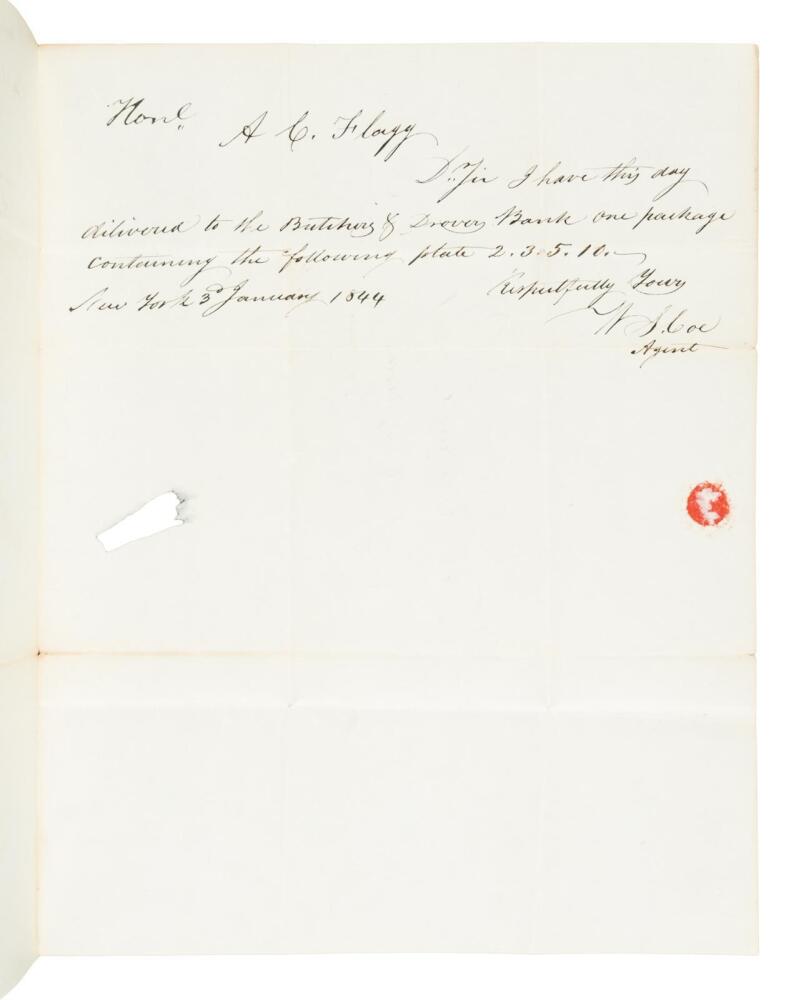 Honl.
A C. Flagg
Dr. Sir I have this day
delivered to the Butchers & Drovers Bank one package
containing the following plate 2.3.5.10.
Respectfully Yours
New York 3d January 1844
W S. Coe
Agent